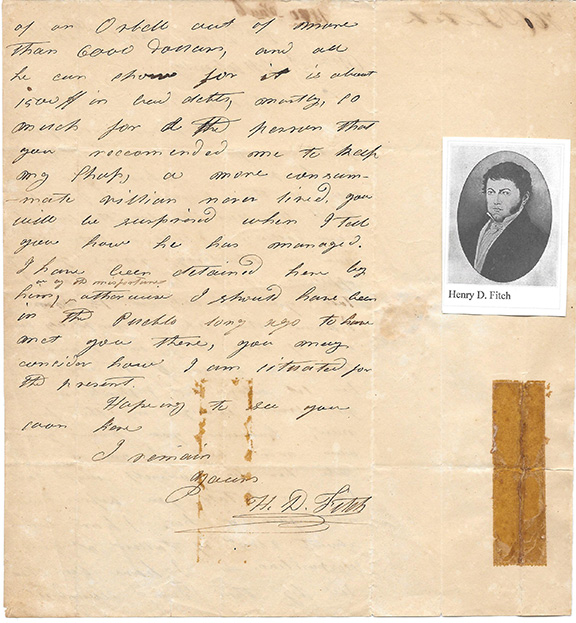 of an Orbell out of more
than 6000 dollars, and all
he can show for it is about
1500 $ in bad debts, mostly, so
much for the person that
you reccomended me to keep
my Shop, a more consum-
-mate villian never lived. you
will be surprised when I tell
you how he has managed.
I have been detained here by
him, otherwise I should have been
in the Pueblo long ago to have
met you there, you may
consider how I am situated for
the present.
Hoping to see you
soon here
I remain
Yours
H. D. Fitch
Henry D. Fitch